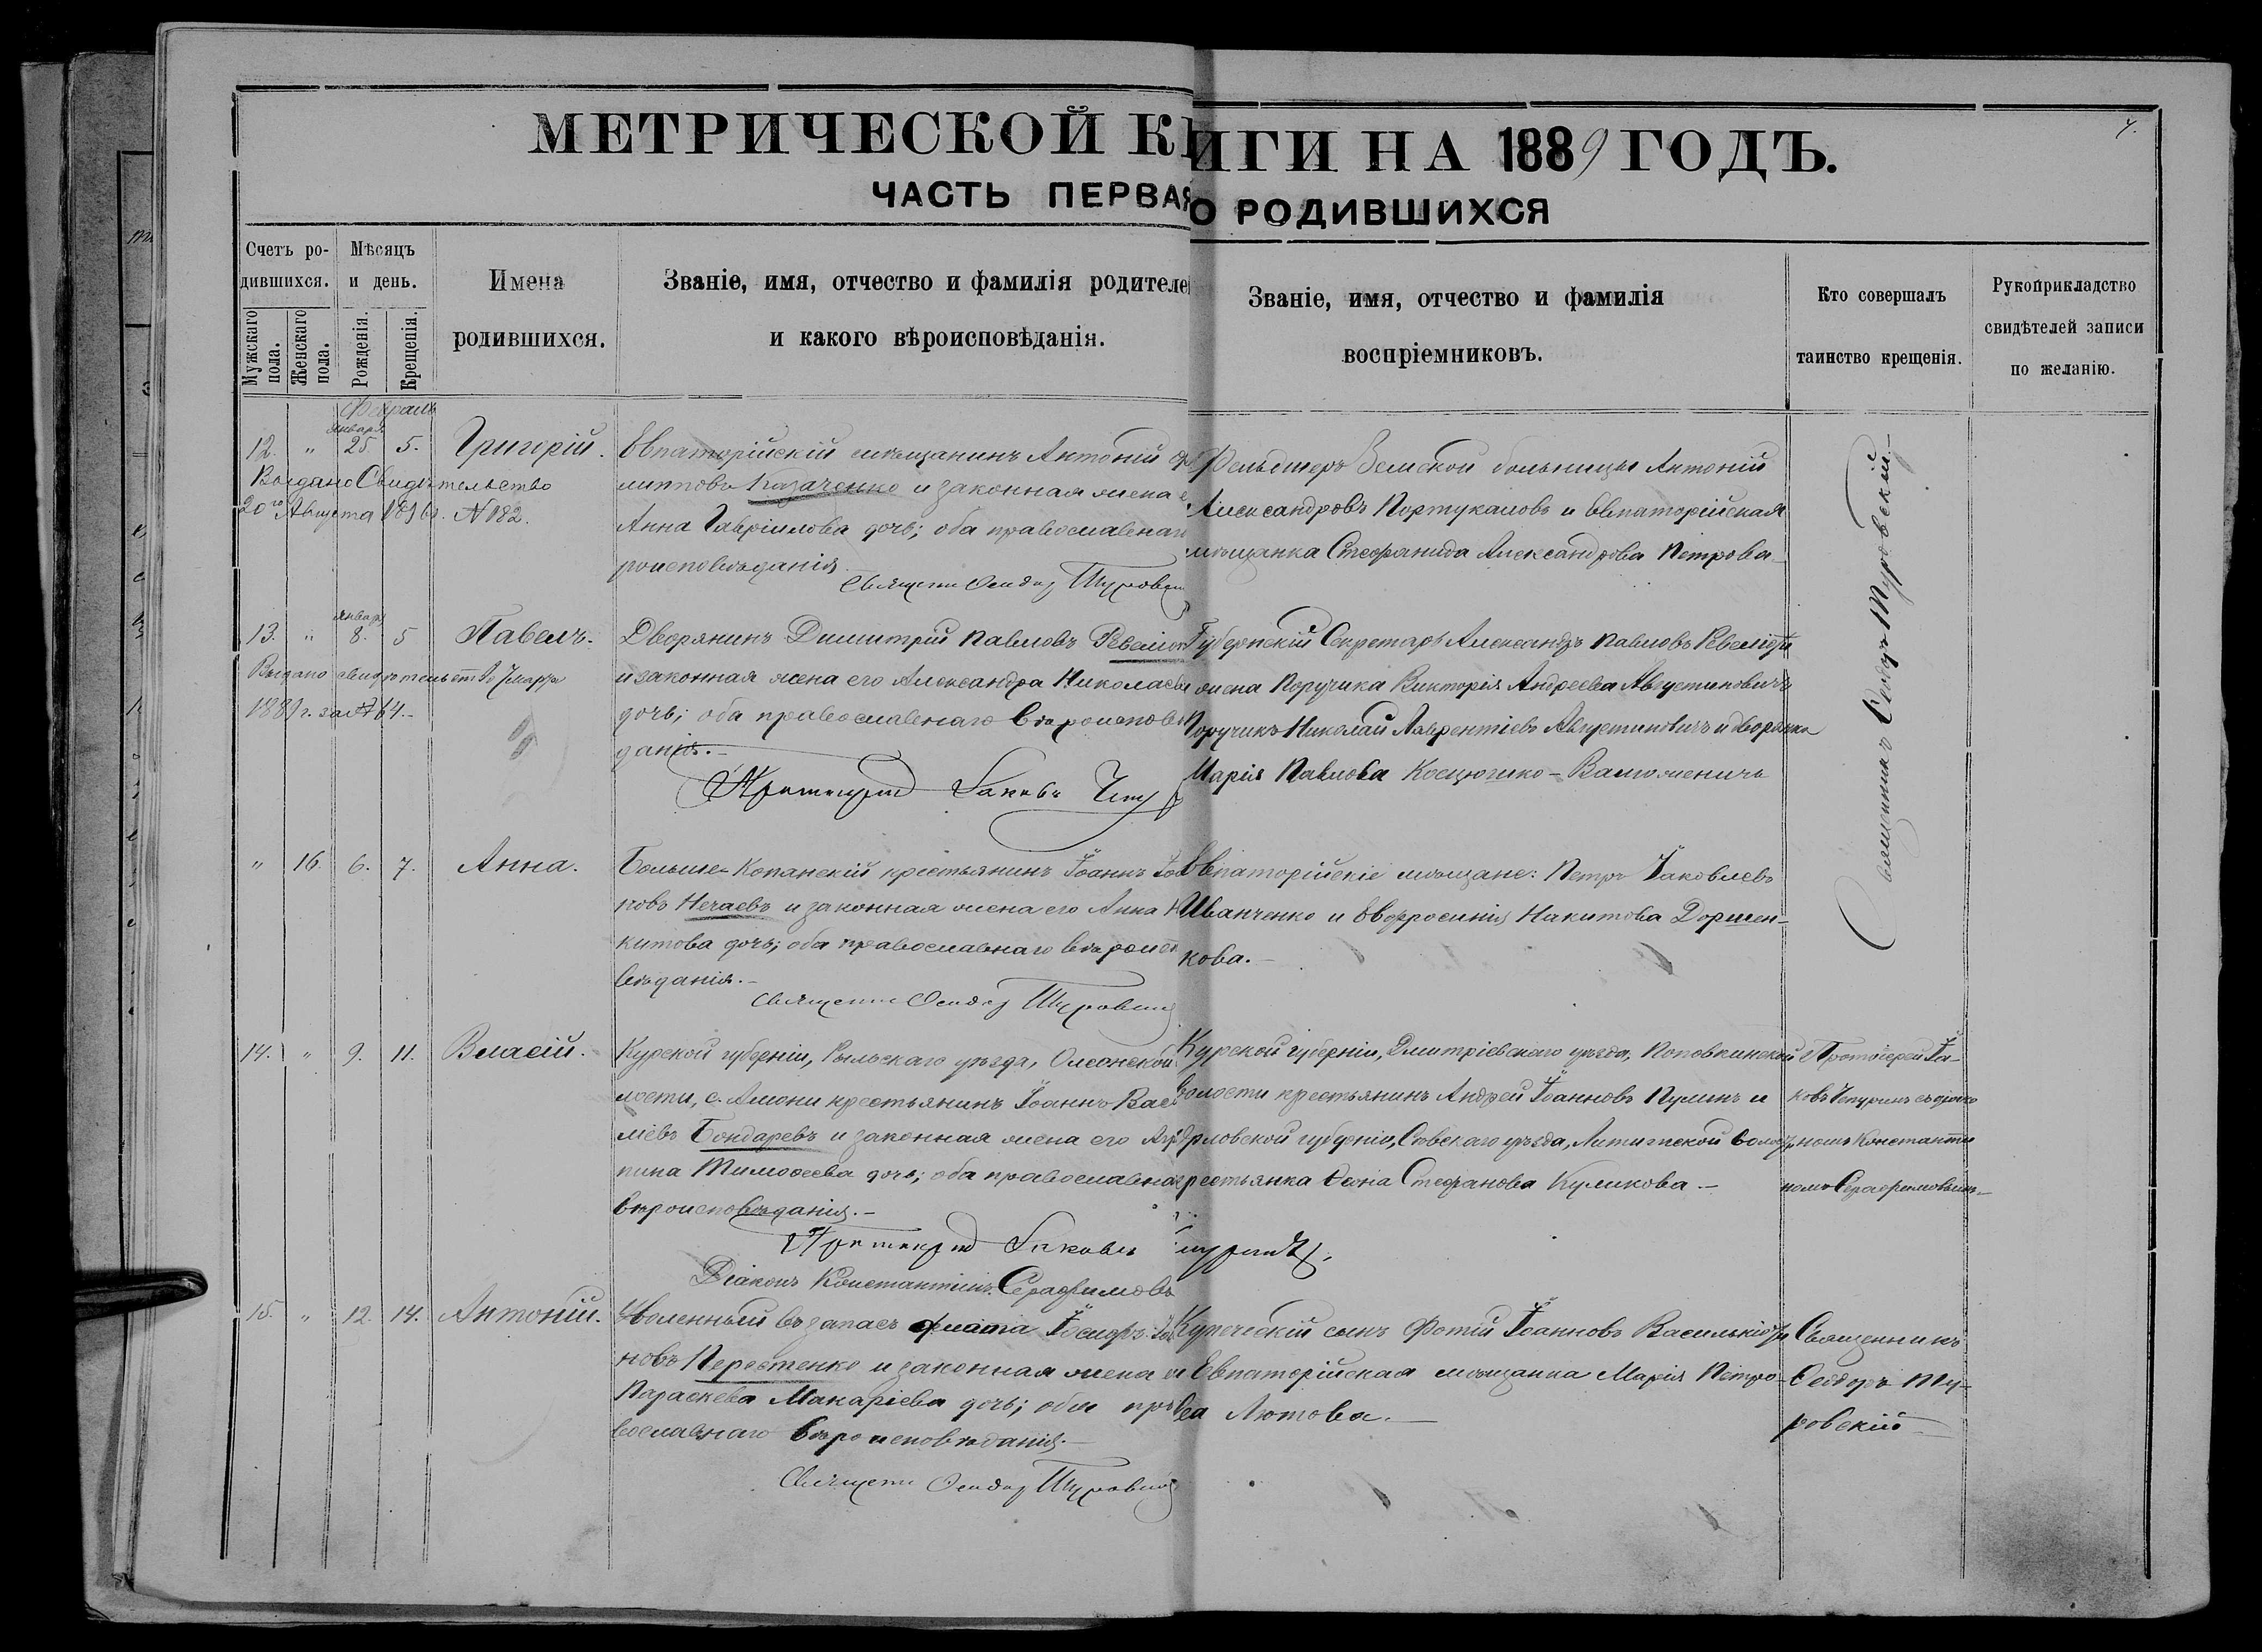 МЕТРИЧЕСКОЙ КНИГИ НА 1889 ГОДЪ.
4.
ЧАСТЬ ПЕРВАЯ О РОДИВШИХСЯ
Счетъ ро-
дившихся.
Мужскаго пола.
Женскаго пола.
Мѣсяцъ
и день.
Рожденія.
Крещенія.
Имена
родившихся.
Званіе, имя, отчество и фамилія родителе
и какого вѣроисповѣданія.
Званіе, имя, отчество и фамилія
воспріемниковъ.
Кто совершалъ
таинство крещенія.
Рукоприкладство
свидѣтелей записи
по желанію.
Февраль
января
12. " 25 5. Григорій.
Выдано Свидѣтельство
20го Августа 1896г. №182.
Евпаторійскій мѣщанинъ Антоній
липповъ Казаченко и законная жена е
Анна Гавріилова дочь; оба православнаго
роисповѣданія
Священ Ѳеодор Туровскі
Фельдшеръ Земской больницы Антоній
Александровъ Портукаловъ и Евпаторійская
мѣщанка Стефанида Александрова Петрова
Священникъ Ѳеодоръ Туровскій.-
январ
13. " 8. 5 Павелъ.
Выдано свидѣтельст
1889г. за №64.-
Дворянинъ Димитрій Павловъ Ревеліот
и законная жена его Александра Николаев
дочь; оба православнаго вѣроисповѣ
данія.-
Протоіерей Іаковъ Чеп
Губернскій Секретарь Александръ Павловъ Ревеліоти
жена Поручика Викторія Андреева Августиновичъ
Поручикъ Николай Лаврентіевъ Августиновичъ и дворянка
Марія Павлова Косцюшко-Валюженичъ
" 16. 6. 7. Анна.
Больше-Копанскій крестьянинъ Іоаннъ
новъ Нечаевъ и законная жена его Анна Н
китова дочь; оба православнаго вѣроисп
вѣданія.-
Священ Ѳеодор Туровскій
Евпаторійскіе мѣщане: Петръ Іаковлевъ
Иванченко и Евфросинія Никитова Доршен-
кова.-
14. " 9. 11. Власій.
Курской губерніи, Рыльскаго уѣзда, Олеонской
лости, с. Амони крестьянинъ Іоаннъ Васи
ліевъ Бондаревъ и законная жена его Агрі
пина Тимоѳеева дочь; оба православнаг
вѣроисповѣданія.-
Протоіерей Іаковъ Чепуринъ
Діаконъ Константинъ Серафимовъ
Курской губерніи, Дмитріевскаго уѣзда, Поповкинской
волости крестьянинъ Андрей Іоанновъ Пулинъ и
Орловской губерніи, Сѣвскаго уѣзда, Литижской волост
крестьянка Ѳеонія Стефанова Куликова.-
Протоіерей Іа-
ковъ Чепуринъ съ діако-
номъ Константи
номъ Серафимовымъ.-
15. " 12. 14. Антоній.
Уволенный въ запасъ флота Іосифъ
новъ Перестенко и законная жена е
Параскева Макаріева дочь; оба пра
вославнаго вѣроисповѣданія.-
Священ Ѳеодор Туровскій
Купеческій сынъ Фотій Іоанновъ Василькіоти
и Евпаторійская мѣщанка Марія Петро-
ва Лютова.-
Священникъ
Ѳеодоръ Ту-
ровскій